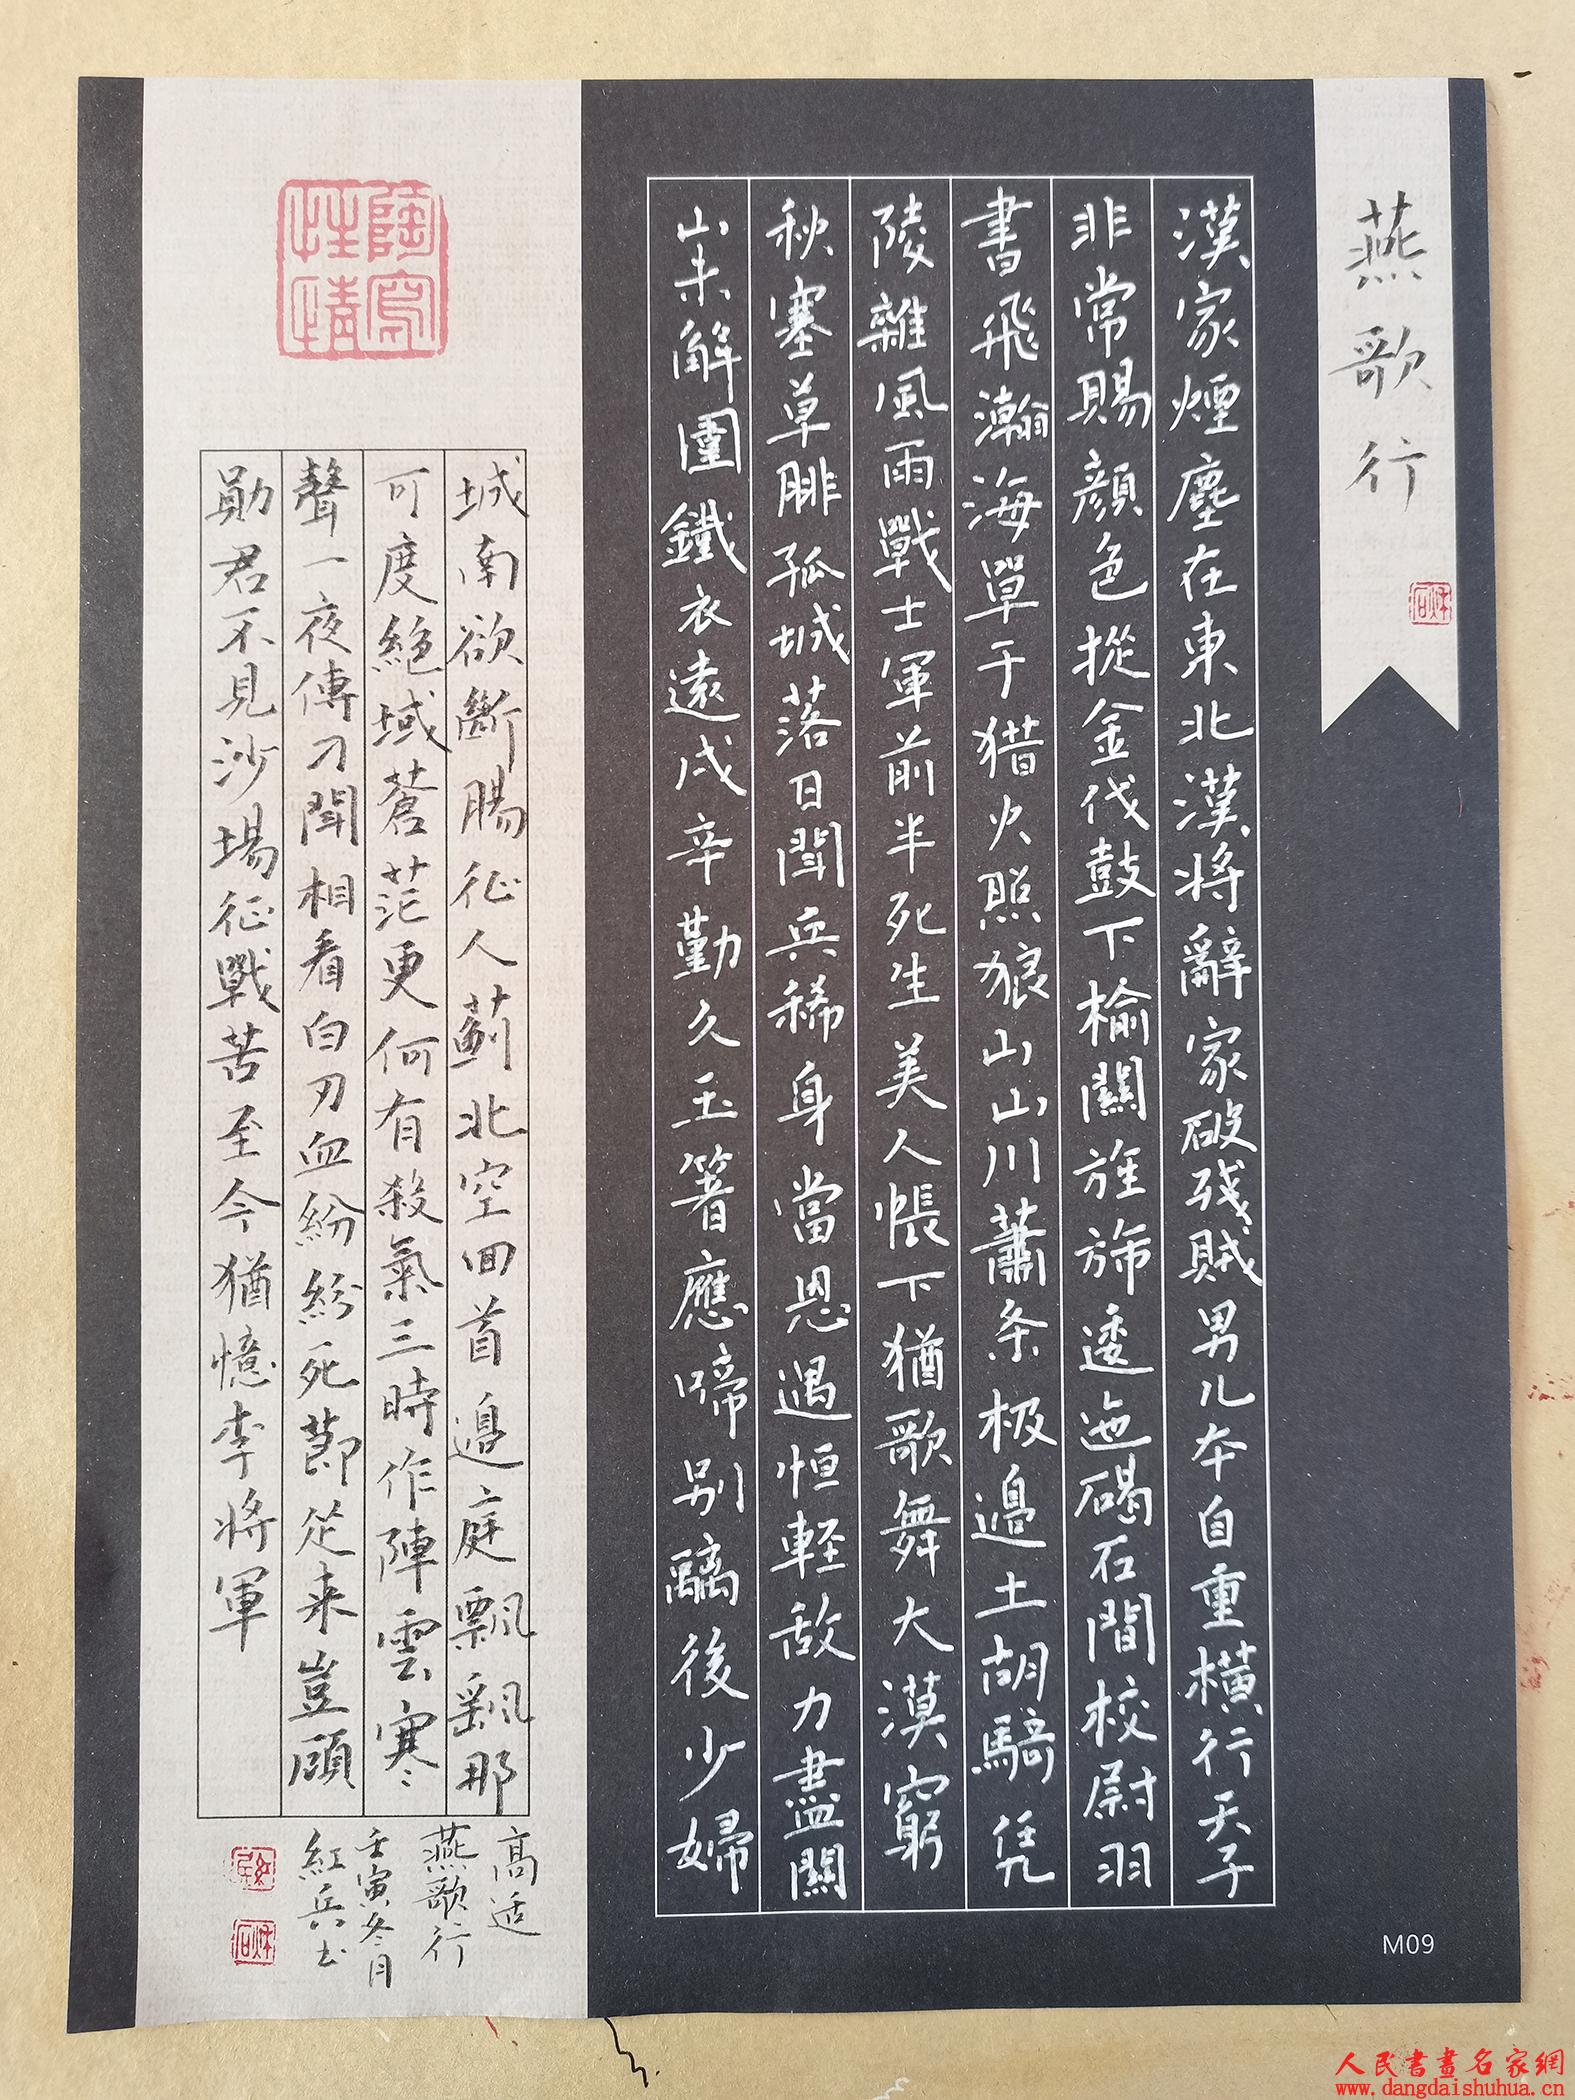 燕歌行
漢家煙塵在東北漢將辭家破残賊男儿本自重横行天子
非常賜顔色摐金伐鼓下榆關旌旆逶迤碣石間校尉羽
書飛瀚海單于猎火照狼山山川蕭条极邉土胡騎凭
陵雜風雨戰士軍前半死生美人帳下猶歌舞大漠窮
秋塞草腓孤城落日聞兵稀身當恩遇恒軽敌力盡關
山未解圍鐵衣遠戍辛勤久玉箸應啼别離後少婦
城南欲斷腸征人薊北空回首邉庭飄飄那
可度絶域蒼茫更何有殺氣三時作陣雲寒
聲一夜傳刁聞相看白刃血紛紛死節從来豈顧
勛君不見沙場征戰苦至今猶憶李將軍
高适
燕歌行
壬寅冬月
紅兵书
陶寫性情
M09
人民書畫名家網
www.dangdaishuhua.cn